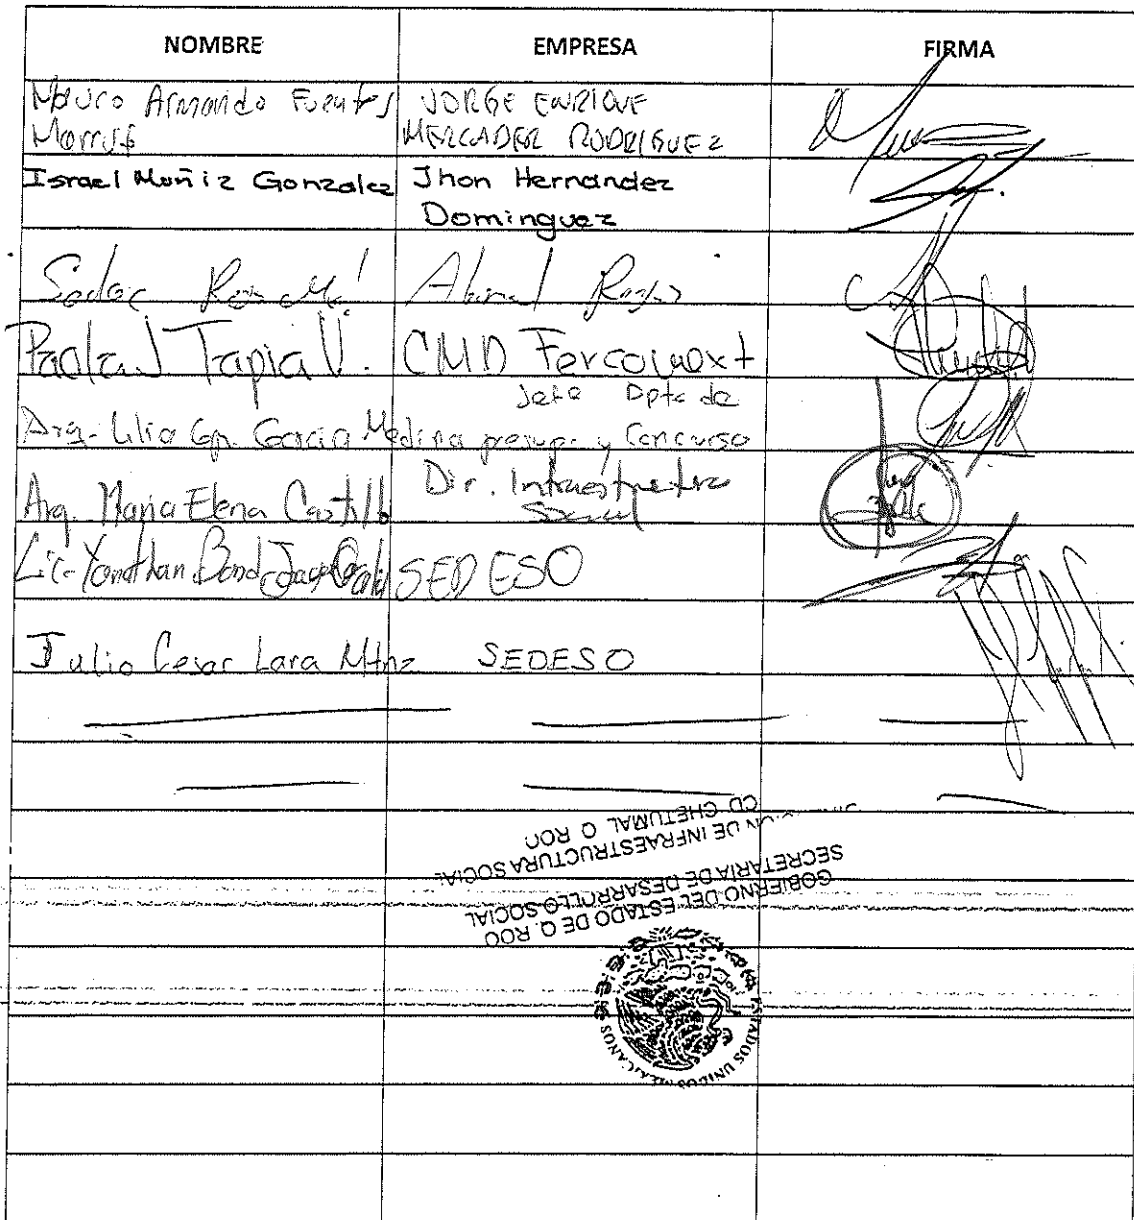 NOMBRE EMPRESA FIRMA
Mauro Armando Fuentes JORGE ENRIQUE
Marrufo MERCADER RODRIGUEZ
Israel Muñiz Gonzalez Jhon Hernandez
Dominguez
Paola J Tapia V. CMD Fercomext
Jefe Dpto de
Arq. Lilia Gpe. Garcia Medina presup. y Concurso
Arq. Maria Elena Castillo Dir. Infraestructura
Social
Lic. Yonathan SEDESO
Julio Cesar Lara Mtnz SEDESO
GOBIERNO DEL ESTADO DE Q. ROO
SECRETARIA DE DESARROLLO SOCIAL
DE INFRAESTRUCTURA SOCIAL
CD CHETUMAL Q ROO
ESTADOS UNIDOS MEXICANOS